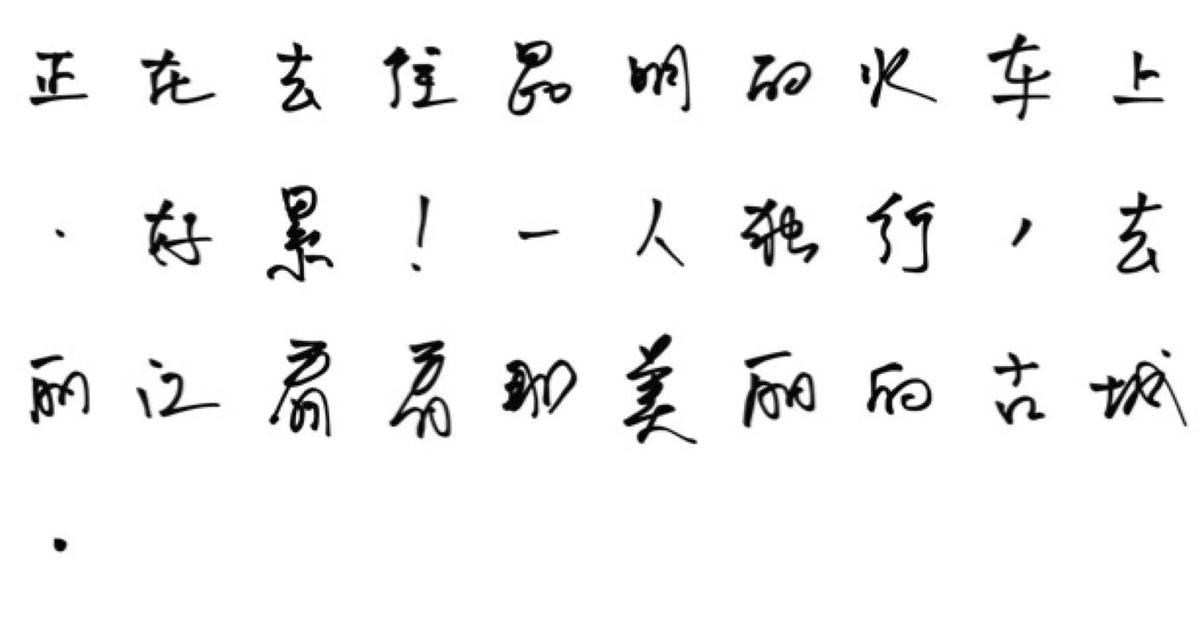 正在去往昆明的火车上
.好累！一人独行，去
丽江看看那美丽的古城
.